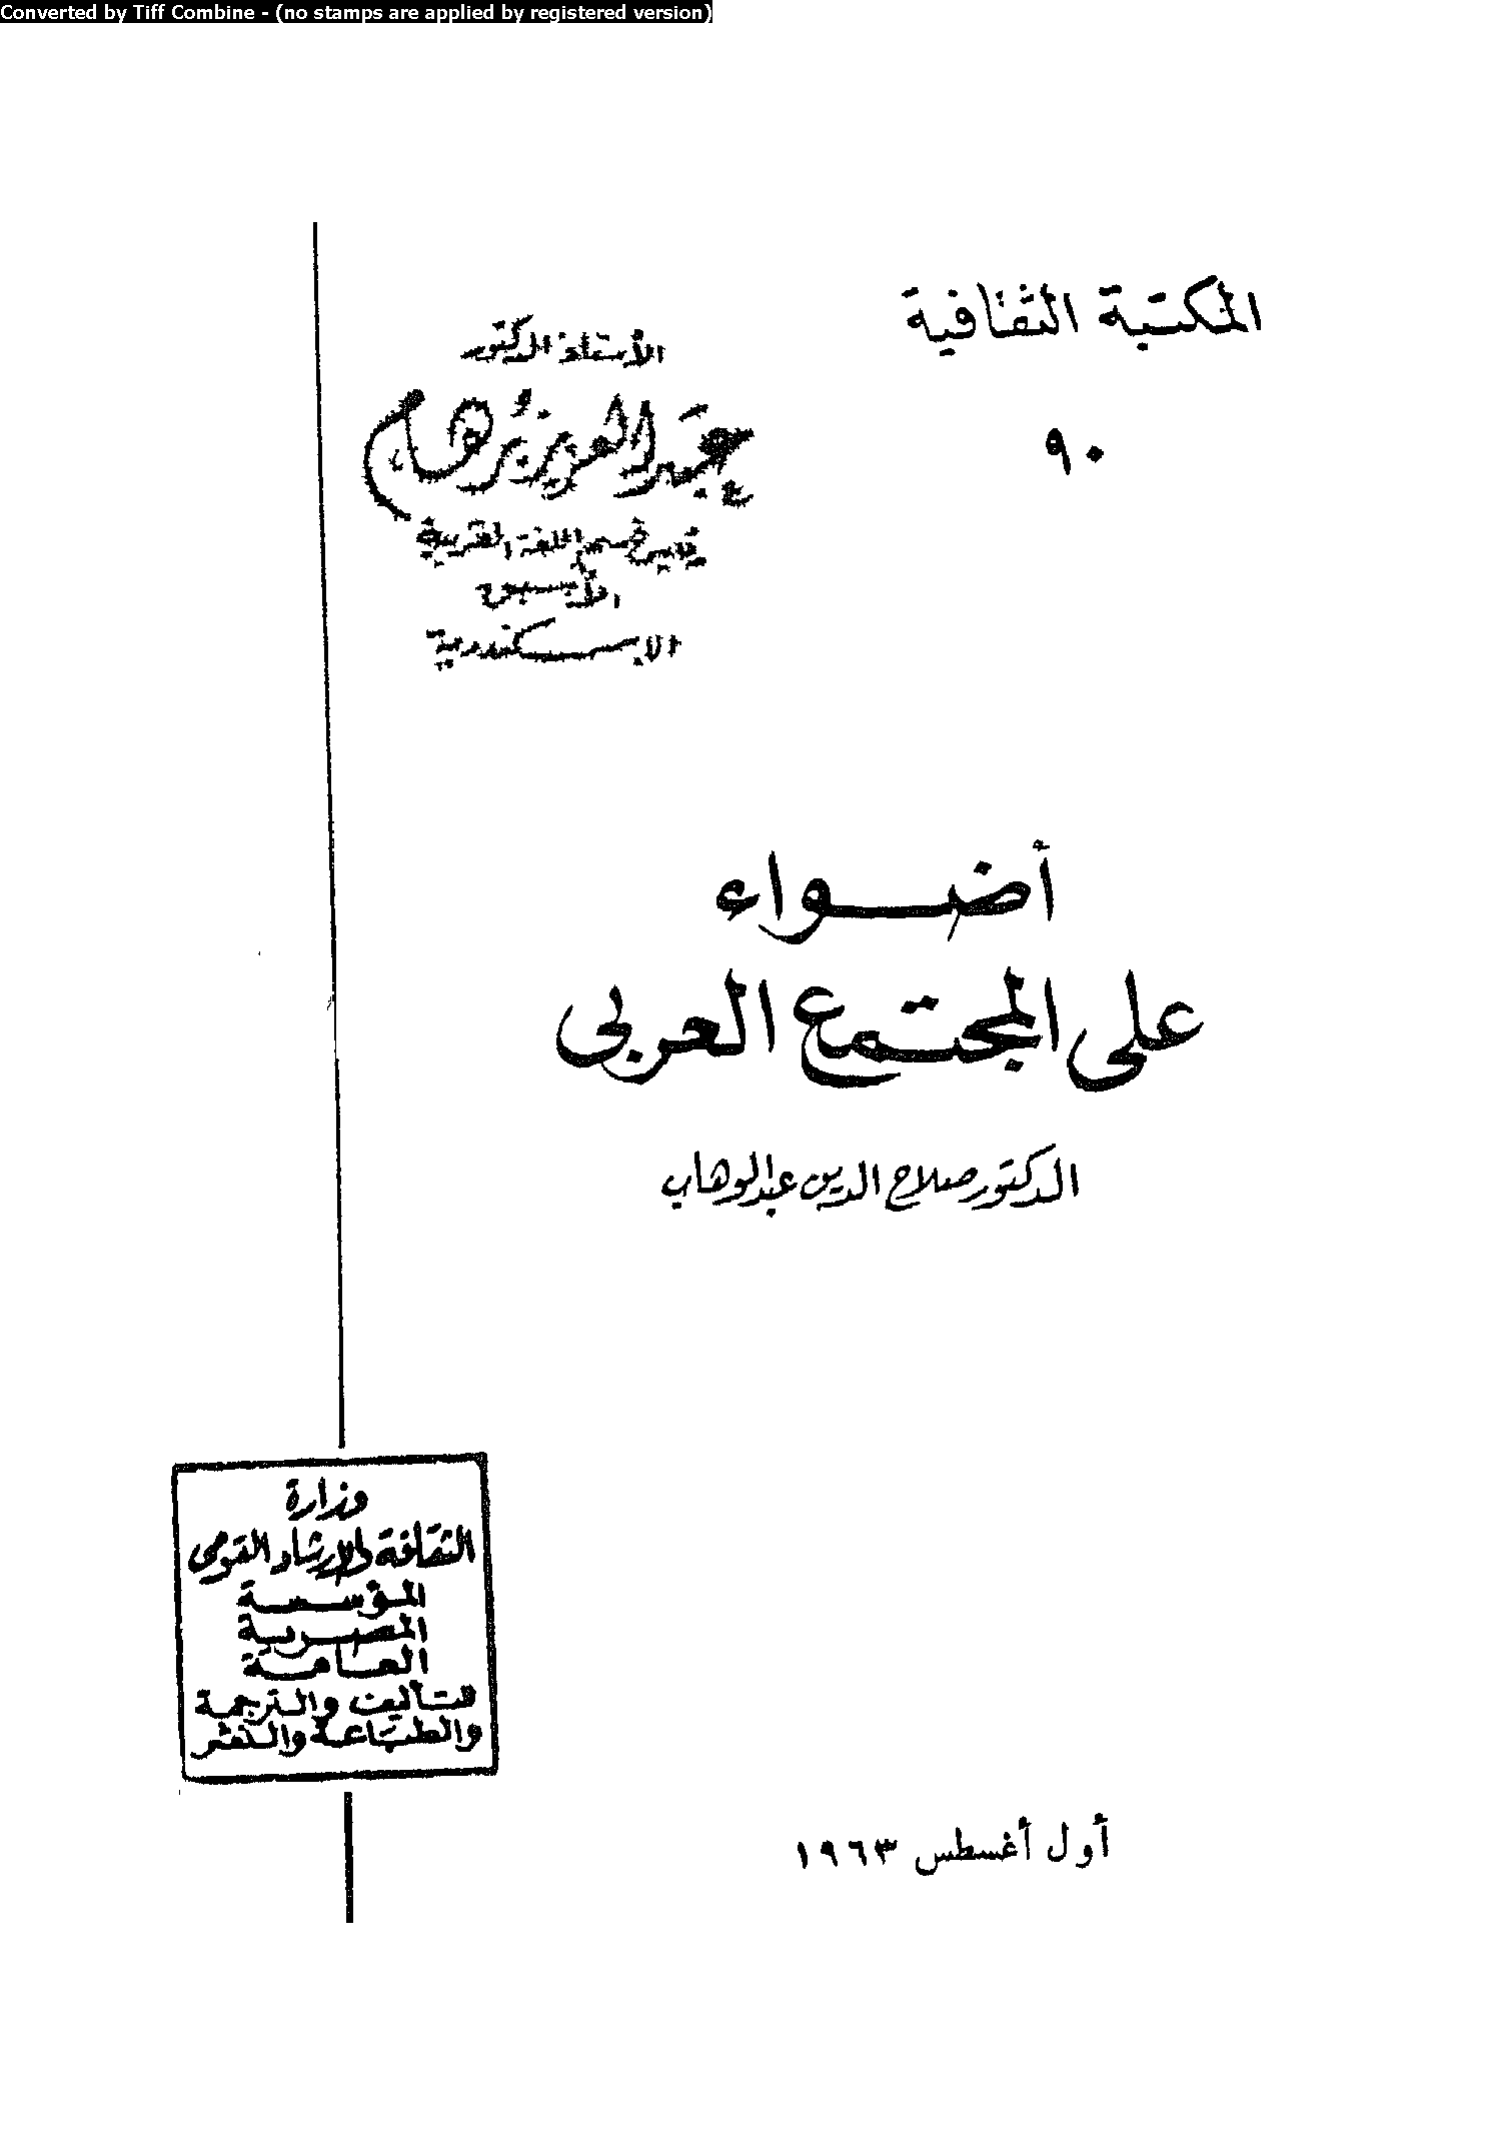 Converted by Tiff Combine - (no stamps are applied by registered version)
المكتبة الثقافية
٩٠
الأستاذ الدكتور
عبد العزيز برهام
رئيس قسم اللغة العربية
الأسبق
الإسكندرية
أضواء
على المجتمع العربى
الدكتور صلاح الدين عبد الوهاب
وزارة
الثقافة والإرشاد القومى
المؤسسة
المصرية
العامة
للتأليف والترجمة
والطباعة والنشر
أول أغسطس ١٩٦٣